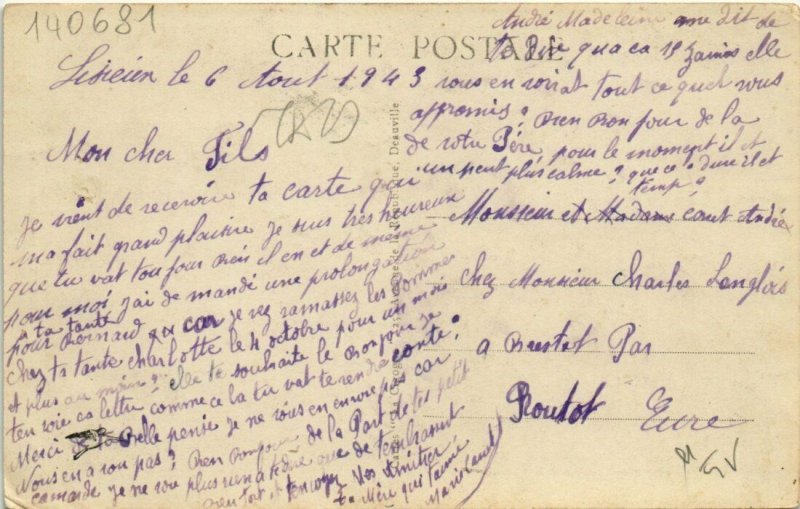 140681
CARTE POSTALE
Lisieux le 6 Aout 1943
Mon cher Fils
Je vient de recevoire ta carte qui
ma fait grand plaisire Je suis très heureux
que tu vat toujour Bien il en et de meme
pour moi j'ai de mandi une prolongation
a ta tante
pour Bernard car je vez ramassez les pommes
chez ta tante Charlotte le 4 octobre pour un mois
et plus au moin? elle te souhaite le Bon jour je
ten voie ca lettre comme ca la tu vat te rendre conte?
Merci ta Belle pensé Je ne vous en envoie pas car
Nous en a ron pas? Bien Bonjour de la Part de tes petit
camarde Je ne voie plus rien a te dire que de tembrasset
Bien tot et tenvoyer Mes Amitier
ta Mère qui taime
André Madeleine me dit de
te dire qua ca 19 zanios elle
vous en voirat tout ce quel vous
a promis? Bien Bon jour de la
de votre Père pour le moment il et
un peut plus calme? que ce dure il et
temp?
Monsieur et Madame caut André
chez Monsieur Charles Langlois
a Brestot Par
Routot Eure